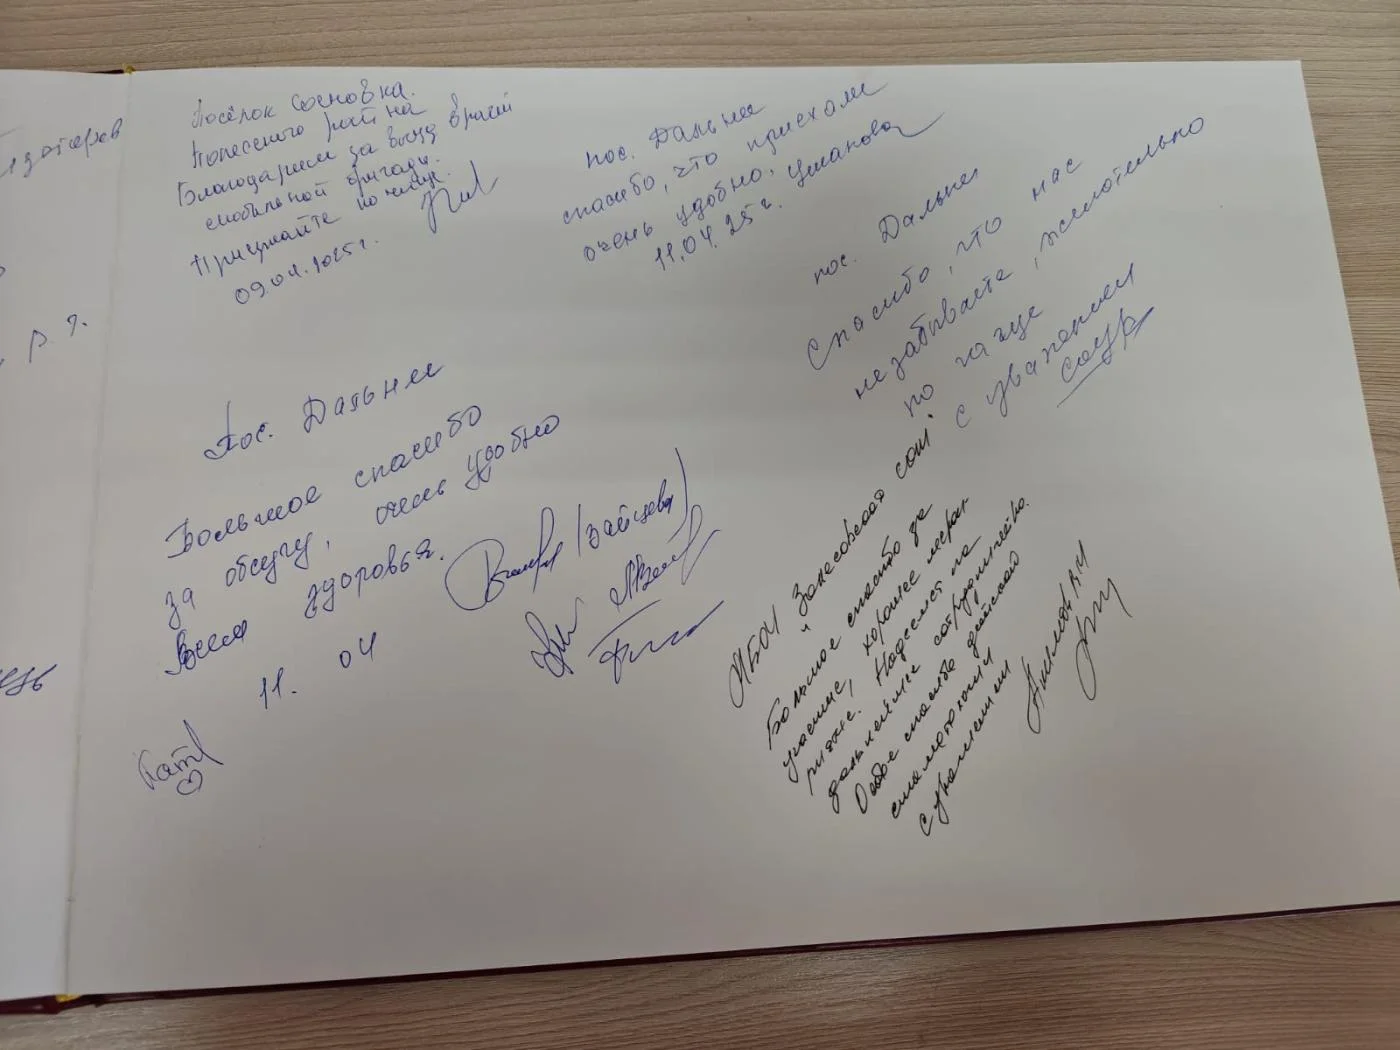 Посёлок Сосновка.
района
Благодарим за врачей
мобильной бригады.
Приезжайте почаще.
09.04.2025г.
пос. Дальнее
спасибо, что приехали
очень удобно. Ушакова
11.04.25г.
пос. Дальнее
Спасибо, что нас
не забываете, желательно
по чаще
с уважением
пос. Дальнее
Большое спасибо
за обслугу, очень удобно
Всем здоровья. (Зайцева)
11. 04
МБОУ Заласовская сош
Большое спасибо за
участие, хорошее меро
приятие. Надеемся на
дальнейшее сотрудничество.
Особое спасибо детской
стоматологии
с уважением